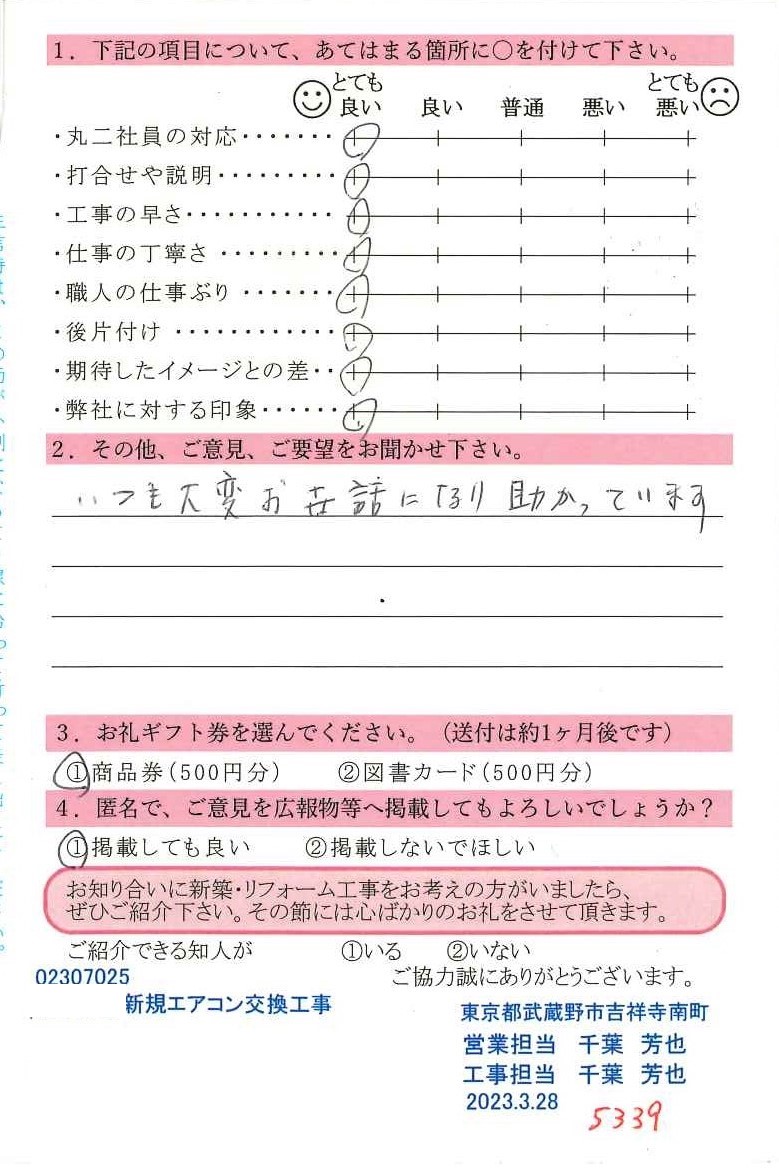 1．下記の項目について、あてはまる箇所に○を付けて下さい。
とても良い 良い 普通 悪い とても悪い
・丸二社員の対応・・・・・・・
・打合せや説明・・・・・・・・・
・工事の早さ・・・・・・・・・・・
・仕事の丁寧さ ・・・・・・・・・
・職人の仕事ぶり ・・・・・・・
・後片付け ・・・・・・・・・・・・
・期待したイメージとの差・・
・弊社に対する印象・・・・・・
2．その他、ご意見、ご要望をお聞かせ下さい。
いつも大変お世話になり助かっています
3．お礼ギフト券を選んでください。（送付は約1ヶ月後です）
①商品券（500円分） ②図書カード（500円分）
4．匿名で、ご意見を広報物等へ掲載してもよろしいでしょうか？
①掲載しても良い ②掲載しないでほしい
お知り合いに新築・リフォーム工事をお考えの方がいましたら、
ぜひご紹介下さい。その節には心ばかりのお礼をさせて頂きます。
ご紹介できる知人が ①いる ②いない
02307025 ご協力誠にありがとうございます。
新規エアコン交換工事 東京都武蔵野市吉祥寺南町
営業担当 千葉 芳也
工事担当 千葉 芳也
2023.3.28
5339